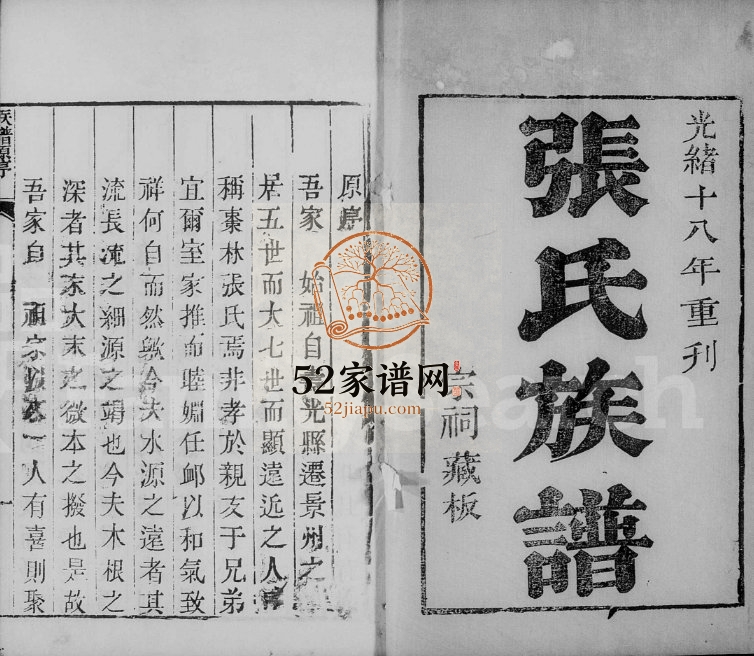 光緒十八年重刊
張氏族譜
宗祠藏板
原序
吾家 始祖自 光縣遷景州之
居五世而大七世而顯遠近之人
稱棗林張氏焉非孝於親友于兄弟
宜爾室家推而睦婣任卹以和氣致
祥何自而然歟今夫水源之遠者其
流長流之細源之竭也今夫木根之
深者其末大末之微本之撥也是故
吾家自 祖宗 一人有喜則聚
族譜 序
一
52家谱网
52jiapu.com